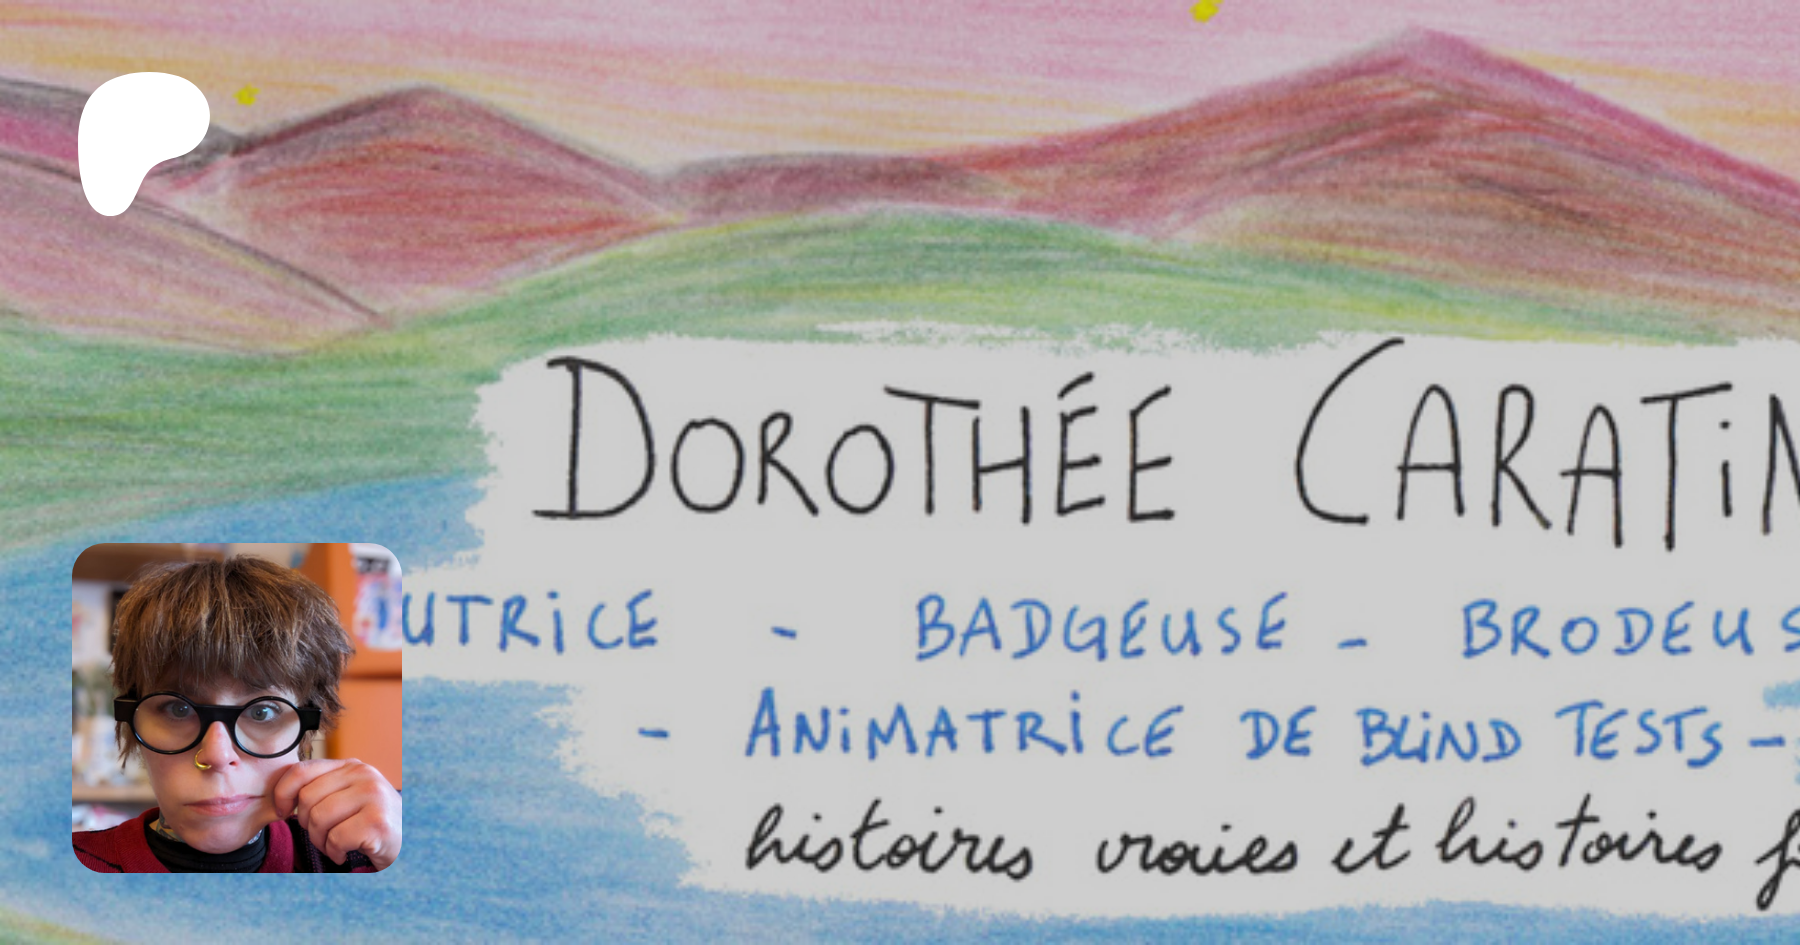 DOROTHÉE CARATIN
UTRICE - BADGEUSE - BRODEUS
- ANiMATRiCE DE BLiND TESTS -
histoires vraies et histoires